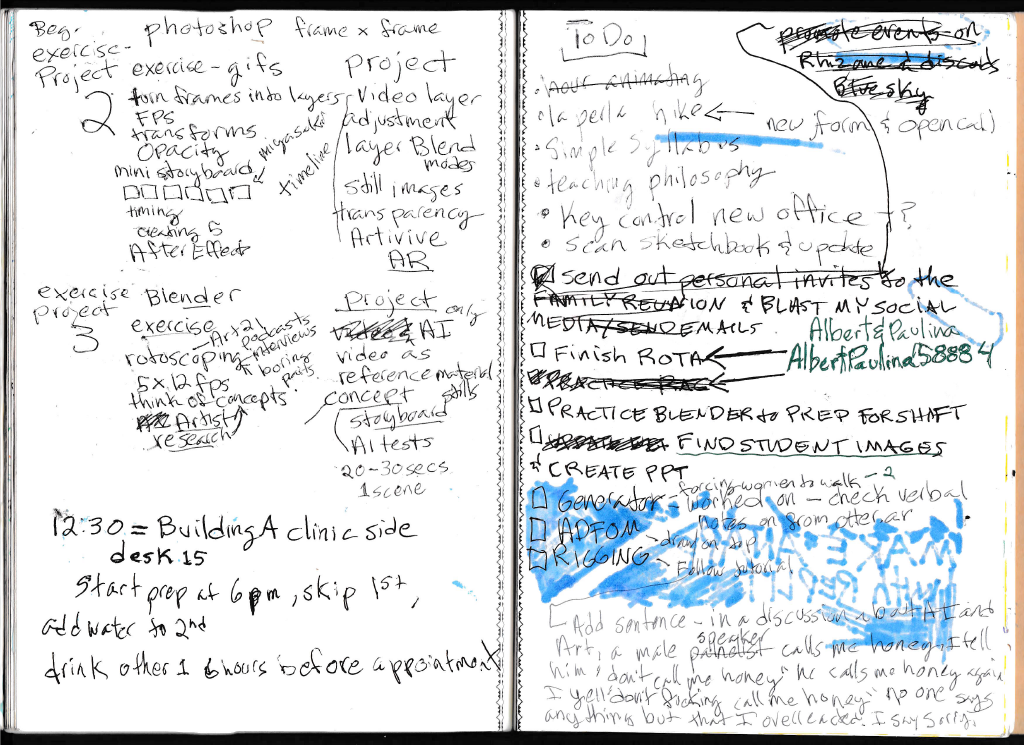 Beg. photoshop frame x frame
exercise-
Project exercise-gifs Project
2 turn frames into layers Video layer
FPS adjustment
transforms layer Blend
Opacity modes
mini storyboard timeline
still images
timing transparency
creating 5 Artivive
After Effects AR
exercise Blender Project
project
3 exercise only
AI
rotoscoping - Art 21 podcasts
interviews
boring parts
video as
5x12 fps reference material
think of concepts concept stills
Artist storyboard
research AI tests
20-30 secs
1 scene
12:30 = Building A clinic side
desk 15
Start prep at 6pm, skip 1st,
add water to 2nd
drink other 1 6 hours before appointment
To Do
promote events on
Rhizome & discords
Bluesky
• hour animating
• la perla hike new form & open call
• Simple Syllabus
• teaching philosophy
• Key control new office - ?
• scan sketchbook & update
send out personal invites to the
FAMILY REUNION & BLAST MY SOCIAL
MEDIA/SEND EMAILS
Albert&Paulina
Finish ROTA AlbertPaulina58884
PRACTICE BLENDER to PREP FOR SHIFT
FIND STUDENT IMAGES
& CREATE PPT
Generator - forcing women to walk - 2
worked on - check verbal
notes on from otter.ar
ADFOM - draw on top
RIGGING - Follow tutorial
Add sentence - in a discussion about AI and
Art, a male panelist speaker calls me honey, I tell
him, "don't call me honey" he calls me honey again
I yell "don't fucking call me honey" no one says
anything but that I overreacted. I say sorry.